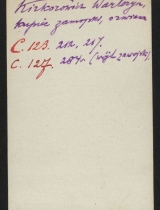 Kirkorowicz Warteryz,
kupiec zamojski, ormianin
C. 123. 212, 217.
C. 127. 284v. (wójt zamojski)